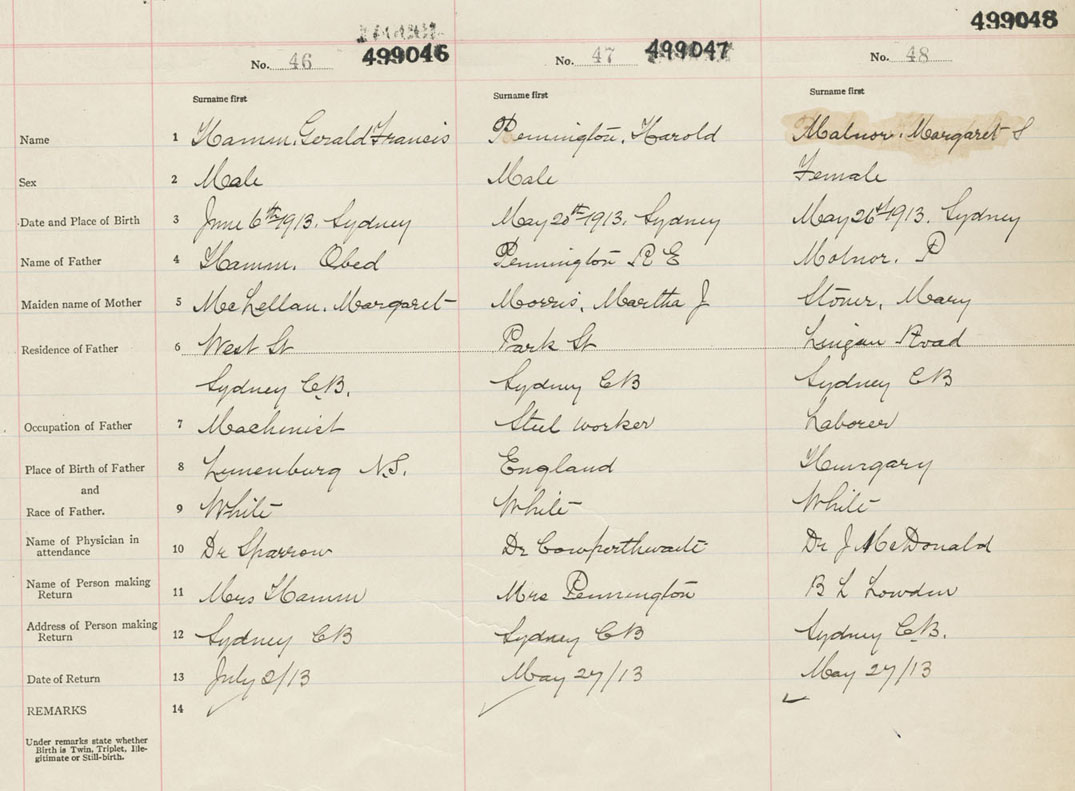 499048
No. 46 499046 No. 47 499047 No. 48
Surname first Surname first Surname first
Name 1 Hamm, Gerald Francis Pennington, Harold Malnor, Margaret S
Sex 2 Male Male Female
Date and Place of Birth 3 June 6th 1913. Sydney May 20th 1913. Sydney May 26st 1913. Sydney
Name of Father 4 Hamm, Obed Pennington R E Molnor, P
Maiden name of Mother 5 McLellan, Margaret Morris, Martha J Stoner, Mary
Residence of Father 6 West St Park St Lingan Road
Sydney C.B. Sydney CB Sydney CB
Occupation of Father 7 Machinist Steel worker Laborer
Place of Birth of Father 8 Lunenburg N.S. England Hungary
and
Race of Father. 9 White White White
Name of Physician in attendance 10 Dr Sparrow Dr Cowperthwaite Dr J McDonald
Name of Person making Return 11 Mrs Hamm Mrs Pennington B L Lowden
Address of Person making Return 12 Sydney CB Sydney CB Sydney C.B.
Date of Return 13 July 2/13 May 27/13 May 27/13
REMARKS 14
Under remarks state whether
Birth is Twin, Triplet, Ille-
gitimate or Still-birth.